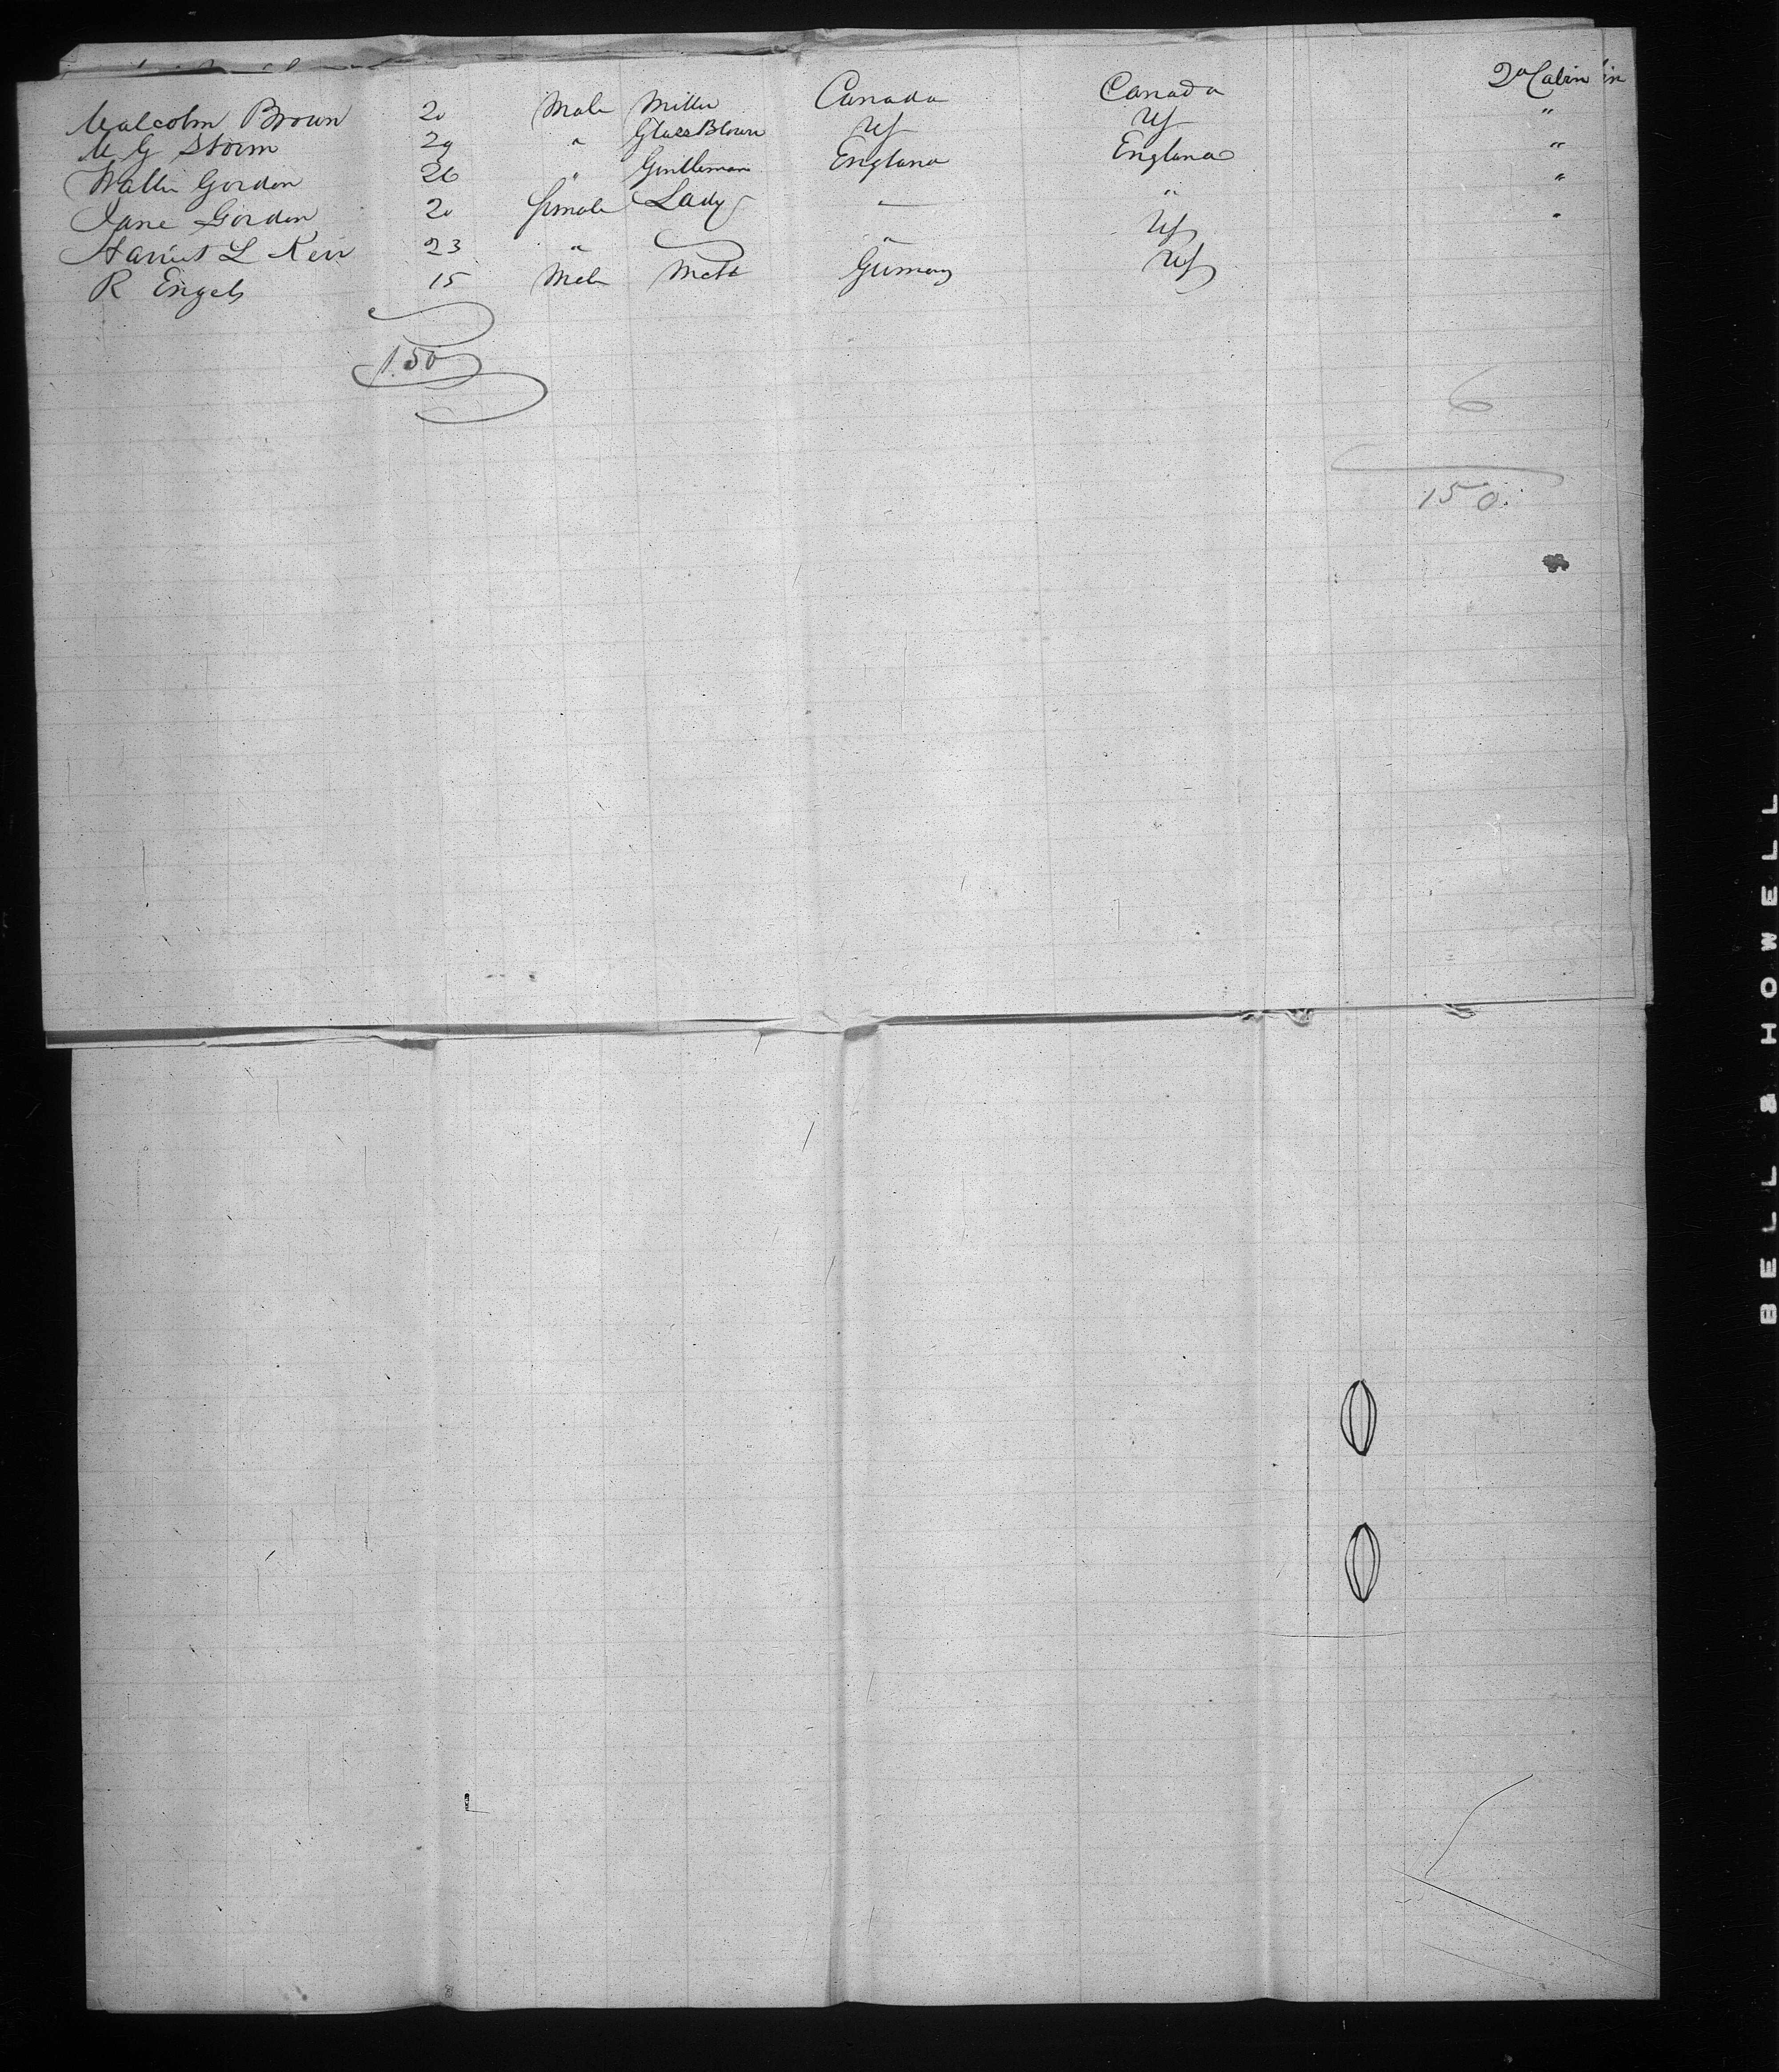 Malcolm Brown 20 Male Miller Canada Canada 2d Cabin
M G Storm 29 " Glass Blower US US "
Walter Gordon 26 " Gentleman England England "
Jane Gordon 20 female Lady — " "
Harriet L Keir 23 " " US "
R Engels 15 Male Germany US
150
6
150
BELL & HOWELL